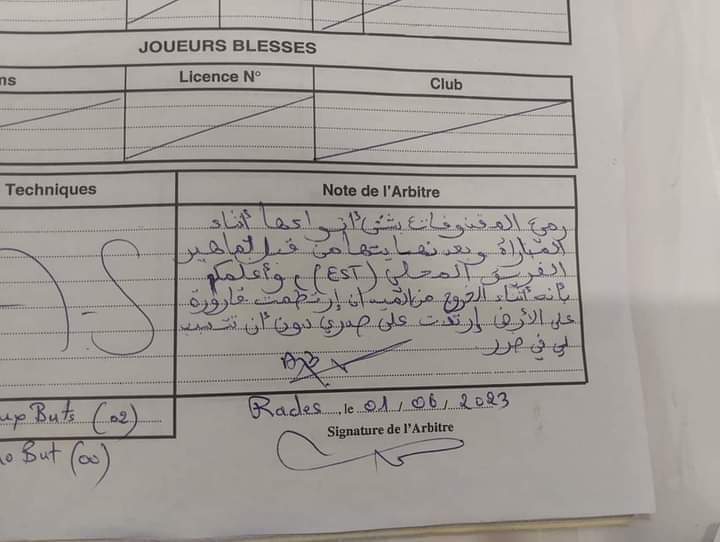 JOUEURS BLESSES
ms
Licence N°
Club
Techniques
Note de l'Arbitre
رمي المقذوفات بشتى أنواعها أثناء
المباراة وبعد نهايتها من قبل جماهير
الفريق المحلي (EST)، وأعلمكم
بأنه أثناء الخروج من الميدان إرتطمت قارورة
على الأرض إرتدت على صدري دون أن تتسبب
لي في ضرر.
Buts (02)
But (00)
Rades, le 01/06/2023
Signature de l'Arbitre